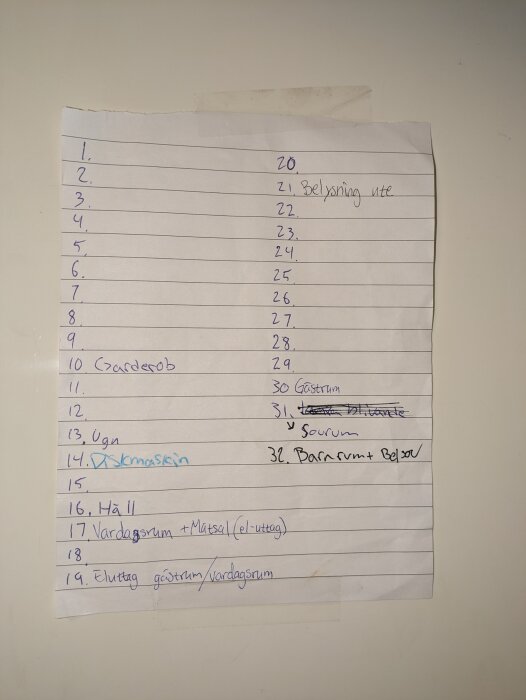 1.
2.
3.
4.
5.
6.
7.
8.
9.
10 Garderob
11.
12.
13. Ugn
14. Diskmaskin
15.
16. Häll
17. Vardagsrum + Matsal (el-uttag)
18.
19. Eluttag gästrum/vardagsrum
20.
21. Belysning ute
22.
23.
24.
25.
26.
27.
28.
29.
30 Gästrum
31. blivande
Sovrum
32. Barnrum +